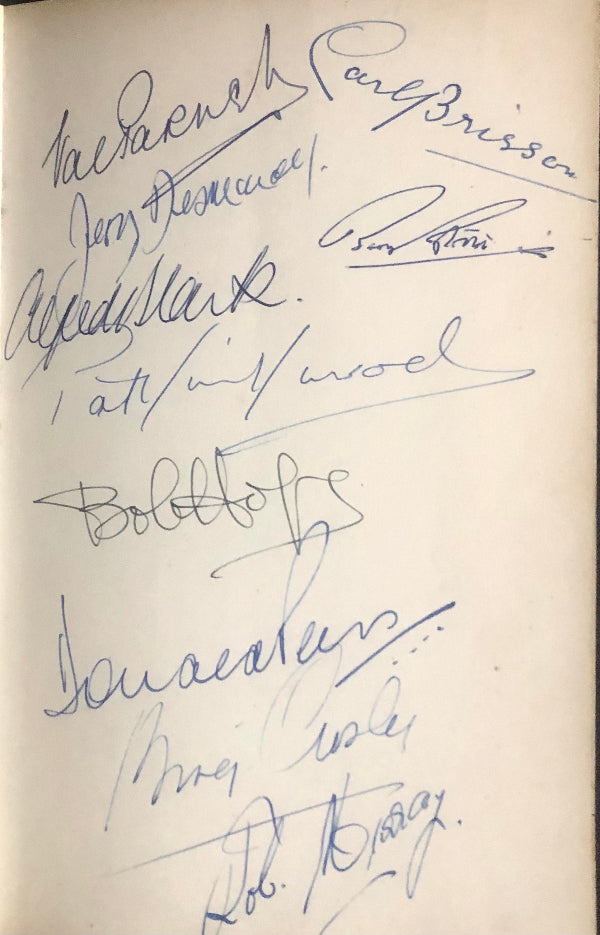 Val Parnell
Carl Brisson
Jerry Desmonde.
Alfred Marks.
Pat Kirkwood
Bob Hope
Donald Peers
Bing Crosby
Rob. Murray.